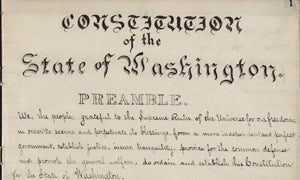 1
CONSTITUTION
of the
State of Washington.
PREAMBLE.
We, the people, grateful to the Supreme Ruler of the Universe for our freedom,
in order to secure and perpetuate its blessings, form a more and perfect
government, establish justice, insure tranquility, provide for the common defense
and promote the general welfare, do ordain and establish this Constitution
for the State of Washington.